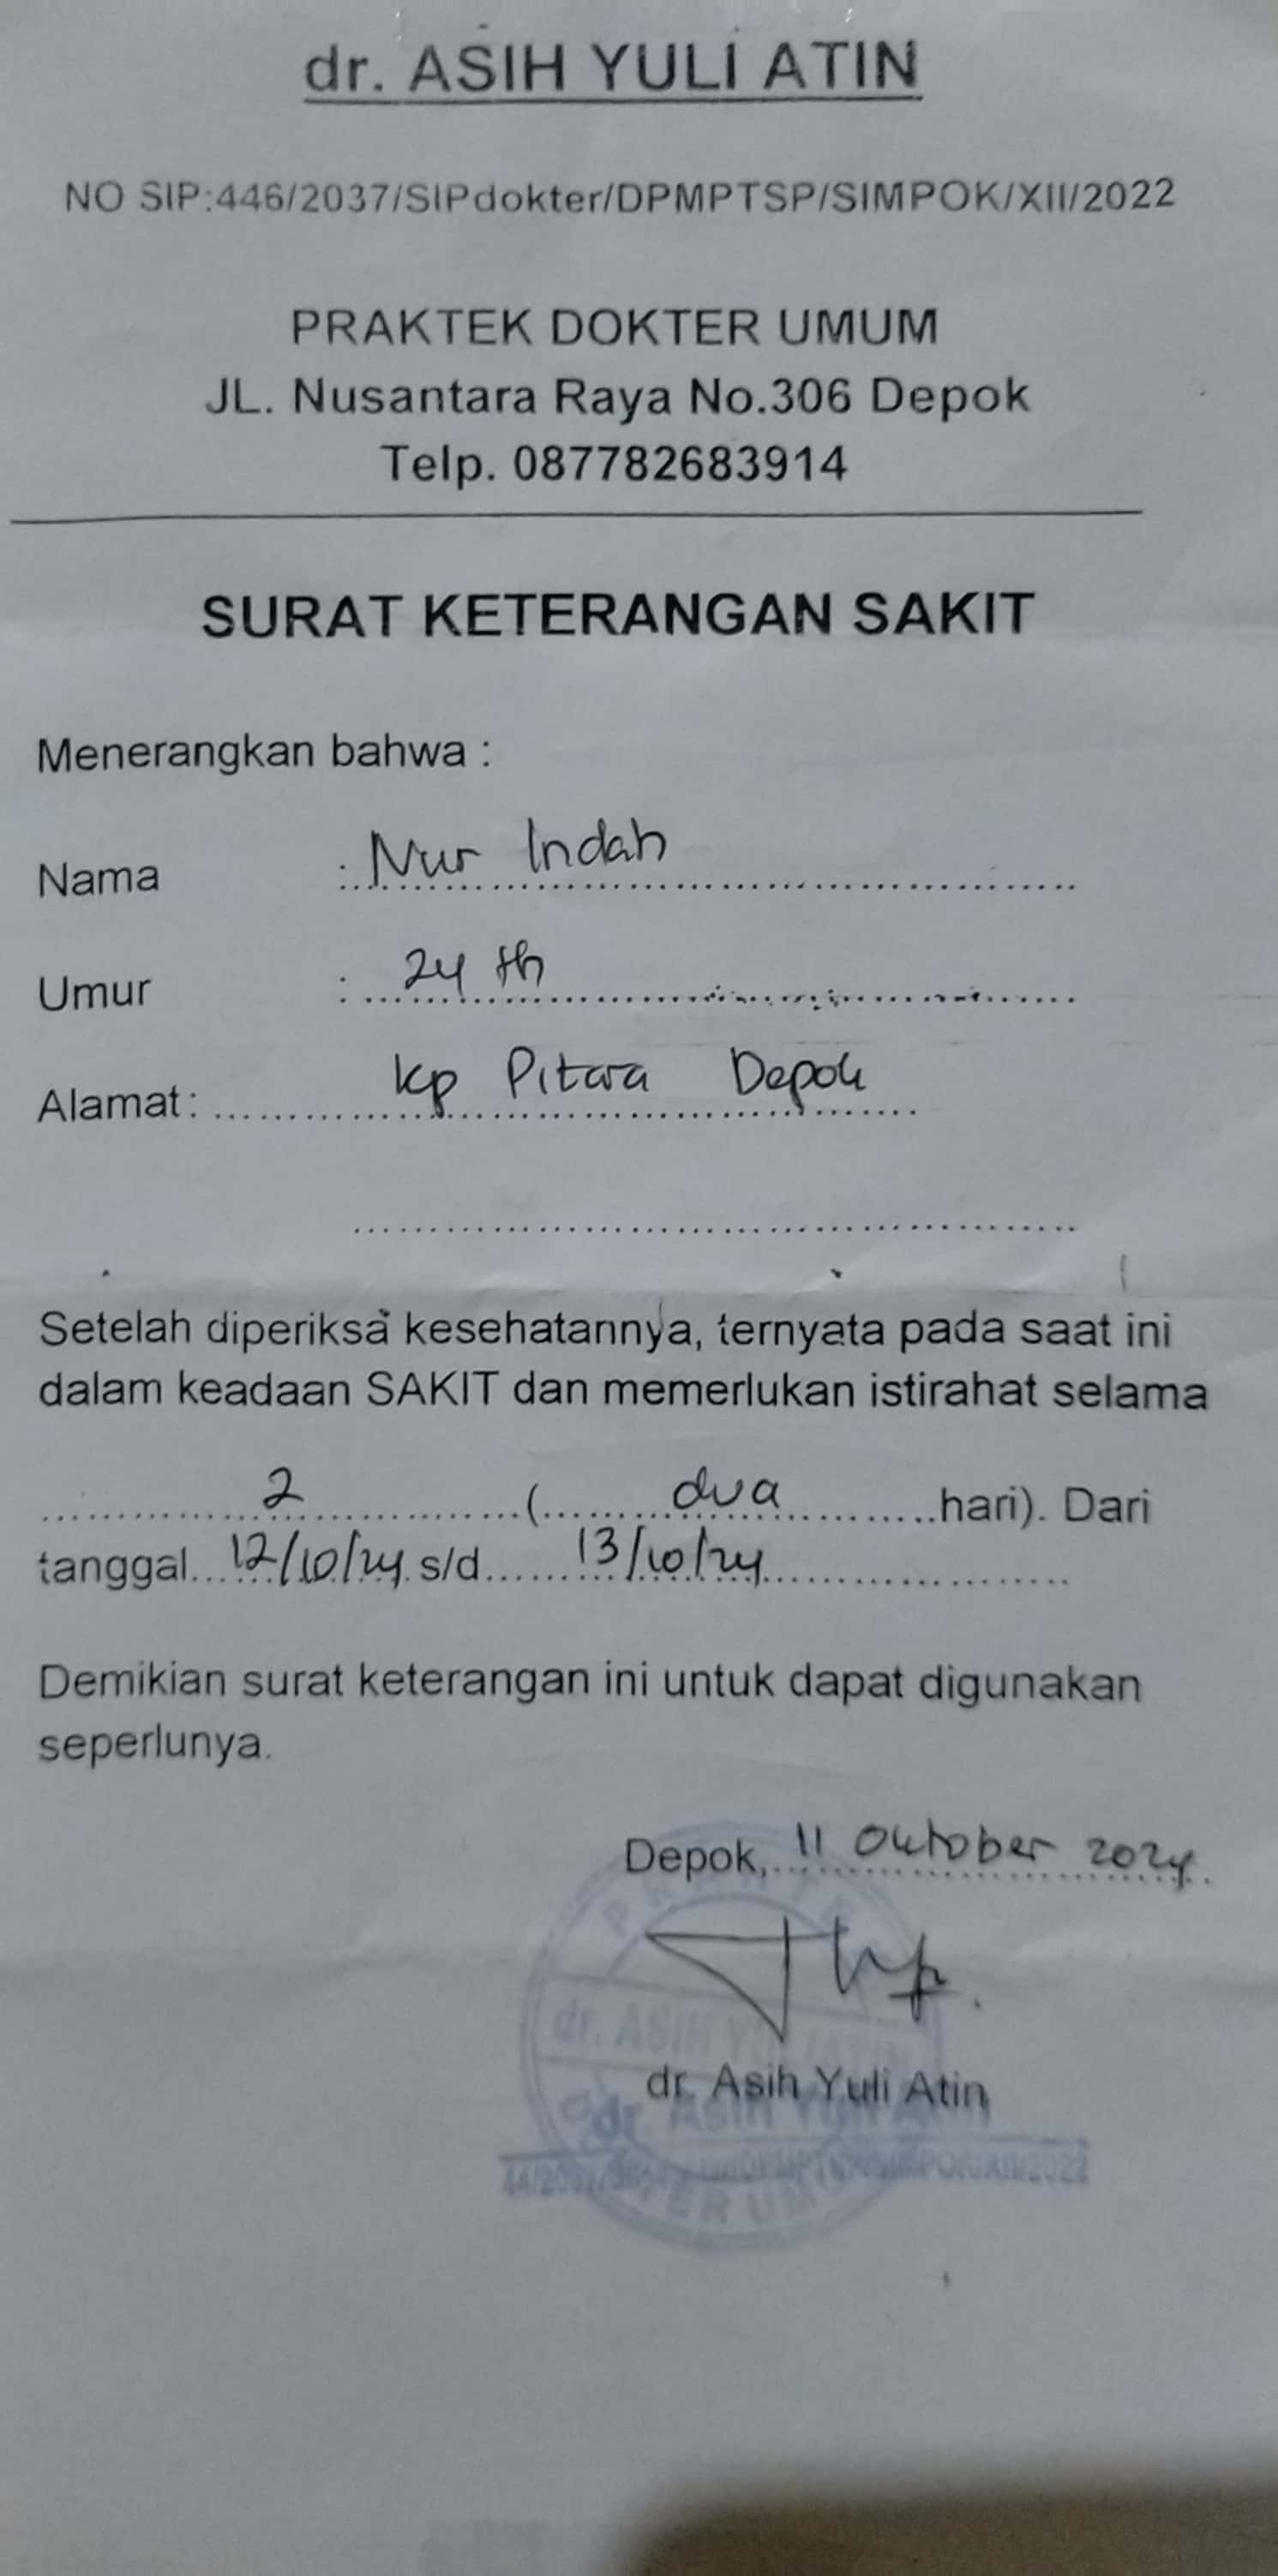 dr. ASIH YULI ATIN
NO SIP:446/2037/SIPdokter/DPMPTSP/SIMPOK/XII/2022
PRAKTEK DOKTER UMUM
JL. Nusantara Raya No.306 Depok
Telp. 087782683914
SURAT KETERANGAN SAKIT
Menerangkan bahwa :
Nama : Nur Indah
Umur : 24 th
Alamat: Kp Pitara Depok
Setelah diperiksa kesehatannya, ternyata pada saat ini
dalam keadaan SAKIT dan memerlukan istirahat selama
2 ( dua hari). Dari
tanggal 12/10/24 s/d 13/10/24
Demikian surat keterangan ini untuk dapat digunakan
seperlunya.
Depok, 11 Oktober 2024
dr. ASIH YULI ATIN
dr. Asih Yuli Atin
dr. Asih Yuli Atin